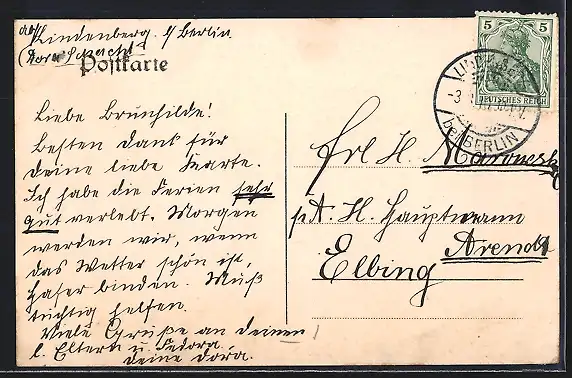 Lindenberg b/Berlin
Postkarte
5 5
DEUTSCHES REICH
bei BERLIN
Liebe Brunhilde!
Besten Dank für
deine liebe Karte.
Ich habe die Ferien sehr
gut verlebt. Morgen
werden wir, wenn
das Wetter schön ist,
Hafer binden. Muß
tüchtig helfen.
Viele Grüße an deinen
l. Eltern u. Fedora.
Deine Dora.
Frl H.
p. A. H. Hauptmann
Arendt
Elbing